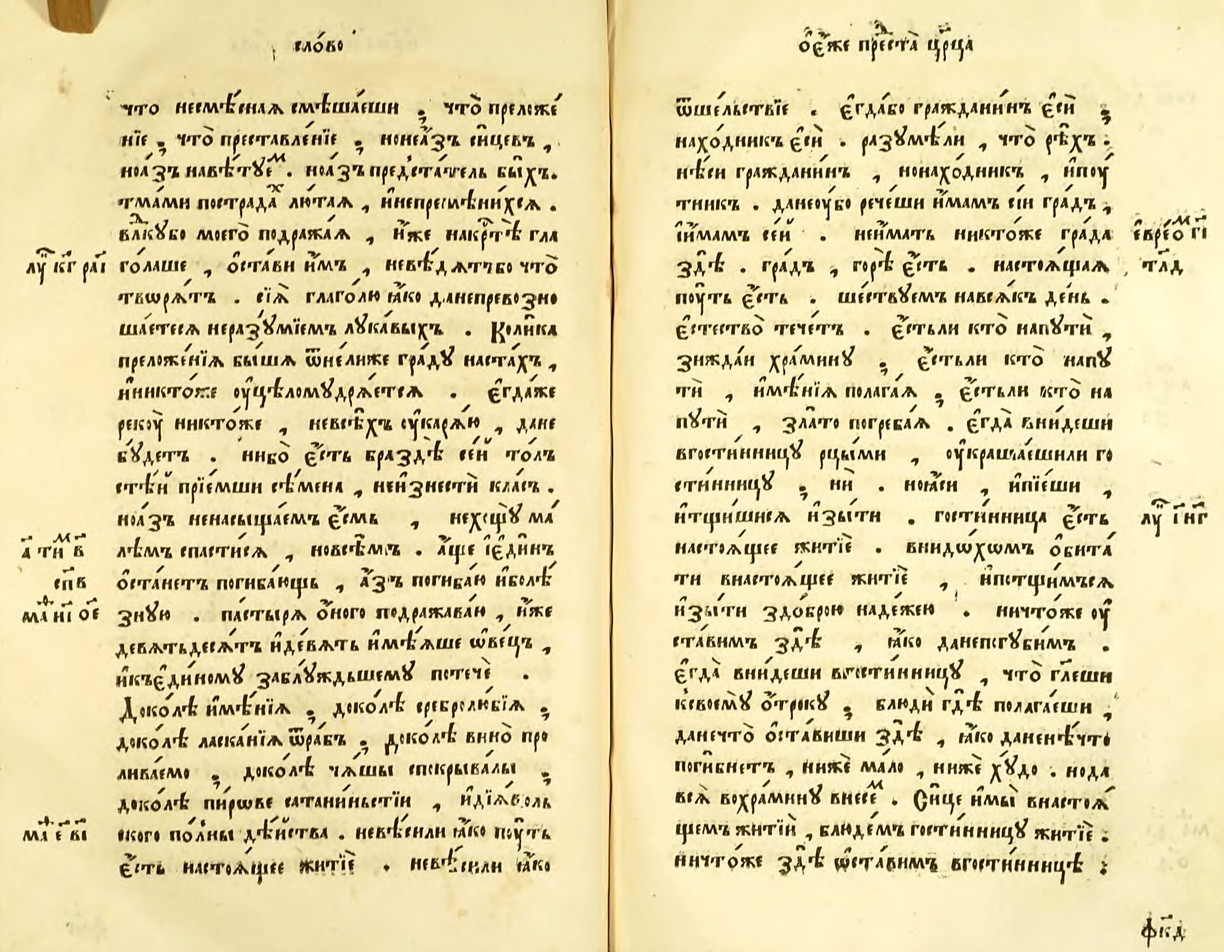 сло́во
что несмѣ́снаѧ смѣша́еши ; что̀ преложе́
нїе ; что̀ преставле́нїе ; нонеа҆́зъ си́цевъ ,
ноа҆́зъ навѣ́тꙋеⷨ . ноа҆́зъ предста́тель бы́хъ .
тма́ми пострада́ⷯ лю́таѧ , и҆непремѣни́хсѧ .
влⷣкꙋбо моего̀ подража́ѧ , и҆́же накрⷭ҇тѣ̀ гла
го́лаше , ѡ҆ста́ви и҆̀мъ , невѣ́дѧтъбо что̀
творѧ́тъ . сїѧ̀ глаго́лю ꙗ҆́ко данепревозно
ша́етесѧ неразꙋ́мїемъ лꙋка́выхъ . Коли́ка
преложе́нїѧ бы́шѧ ѿне́лиже гра́дꙋ наста́хъ ,
и҆никто́же оу҆цѣломꙋдрѧ́етсѧ . є҆гда́же
рекꙋ̀ никто́же , невсѣ́хъ оу҆карѧ́ю , дане
бꙋ́детъ . нибо̀ є҆́сть браздѣ̀ се́й то́лъ
стѣ́й прїе́мши сѣ́мена , неи҆знестѝ кла́съ .
ноа҆́зъ ненасыща́емъ є҆́смь , нехощꙋ̀ ма́
лѣмъ спасти́сѧ , новсѣ́мъ . а҆́ще і҆еди́нъ
ѡ҆ста́нетъ погиба́ющь , а҆́зъ погиба́ю и҆болѣ́
знꙋю . па́стырѧ о҆́ного подража́ваю , и҆́же
девѧ́тьдесѧ́тъ и҆де́вѧть и҆мѣ́ѧше ѡ҆ве́цъ ,
и҆къе҆ди́номꙋ заблꙋ́ждьшемꙋ потечѐ .
Доко́лѣ и҆мѣ́нїѧ ; доко́лѣ сребролю́бїѧ ;
доко́лѣ ласка́нїѧ ѿра́бъ ; доко́лѣ вино̀ про
лива́емо ; доко́лѣ ча́шы спокрыва́лы ;
доко́лѣ пи́рове сатани́ньстїи , и҆дїѧ́воль
ского по́лны дѣ́йства . невѣ́сили ꙗ҆́ко пꙋ́ть
є҆́сть настоѧ́щее житїѐ . невѣ́сили ꙗ҆́ко
лꙋⷦ҇ к҃г ра҃і
а҃ тиⷨ в҃
сп҃в
маⷴ н҃і о҃е
маⷴ е҃ в҃і
ѡ҆е҆́же преⷣста̀ цр҃ца
ѿше́льствїе . є҆гда́бо граждани́нъ є҆сѝ ;
нахо́дникъ є҆сѝ . разꙋмѣ́ли , что̀ рѣ́хъ .
нѣ́си граждани́нъ , нонахо́дникъ , и҆пꙋ́
тникъ . данеоу҆бо рече́ши и҆́мамъ сїи гра́дъ ,
и҆и҆́мамъ се́й . неи҆́мать никто́же гра́да
здѣ̀ . гра́дъ , горѣ̀ є҆́сть . настоѧ́щаѧ
пꙋ́ть є҆́сть . ше́ствꙋемъ навсѧ́къ де́нь .
є҆стество̀ тече́тъ . є҆́стьли кто̀ напꙋтѝ ,
зижда́и хра́минꙋ ; є҆́стьли кто̀ напꙋ
тѝ , и҆мѣ́нїѧ полага́ѧ ; є҆́стьли кто̀ на
пꙋтѝ , зла́то погреба́ѧ . є҆гда̀ вни́деши
вгости́нницꙋ рцы́ми , оу҆краша́ешили го
сти́нницꙋ ; нѝ . ноꙗ҆́си , и҆пїе́ши ,
и҆тщи́шисѧ и҆зы́ти . гости́нница є҆́сть
настоѧ́щее житїѐ . внидѡ́хомъ ѡ҆бита́
ти внастоѧ́щее житїѐ , и҆потщи́мъсѧ
и҆зы́ти здо́брою наде́жею . ничто́же оу҆
ста́вимъ здѣ̀ , ꙗ҆́ко данепогꙋби́мъ .
є҆гда̀ вни́деши вгости́нницꙋ , что̀ гл҃еши
ксвоемꙋ̀ о҆́трокꙋ ; блюдѝ гдѣ̀ полага́еши ,
данечто̀ ѡ҆ста́виши здѣ̀ , ꙗ҆́ко даненѣ́что
поги́бнетъ , нижѐ ма́ло , нижѐ хꙋ́до . нода
всѧ̀ вохра́минꙋ внесе́ⷨ . Си́це и҆мы̀ внастоѧ́
щемъ житїѝ , блюде́мъ гости́нницꙋ житїѐ .
ничто́же здѣ̀ ѡ҆ста́вимъ вгости́нницѣ :
є҆вре́ѡⷨ г҃і
тл҃д
лꙋⷦ҇ і҃ н҃г
фк҃д